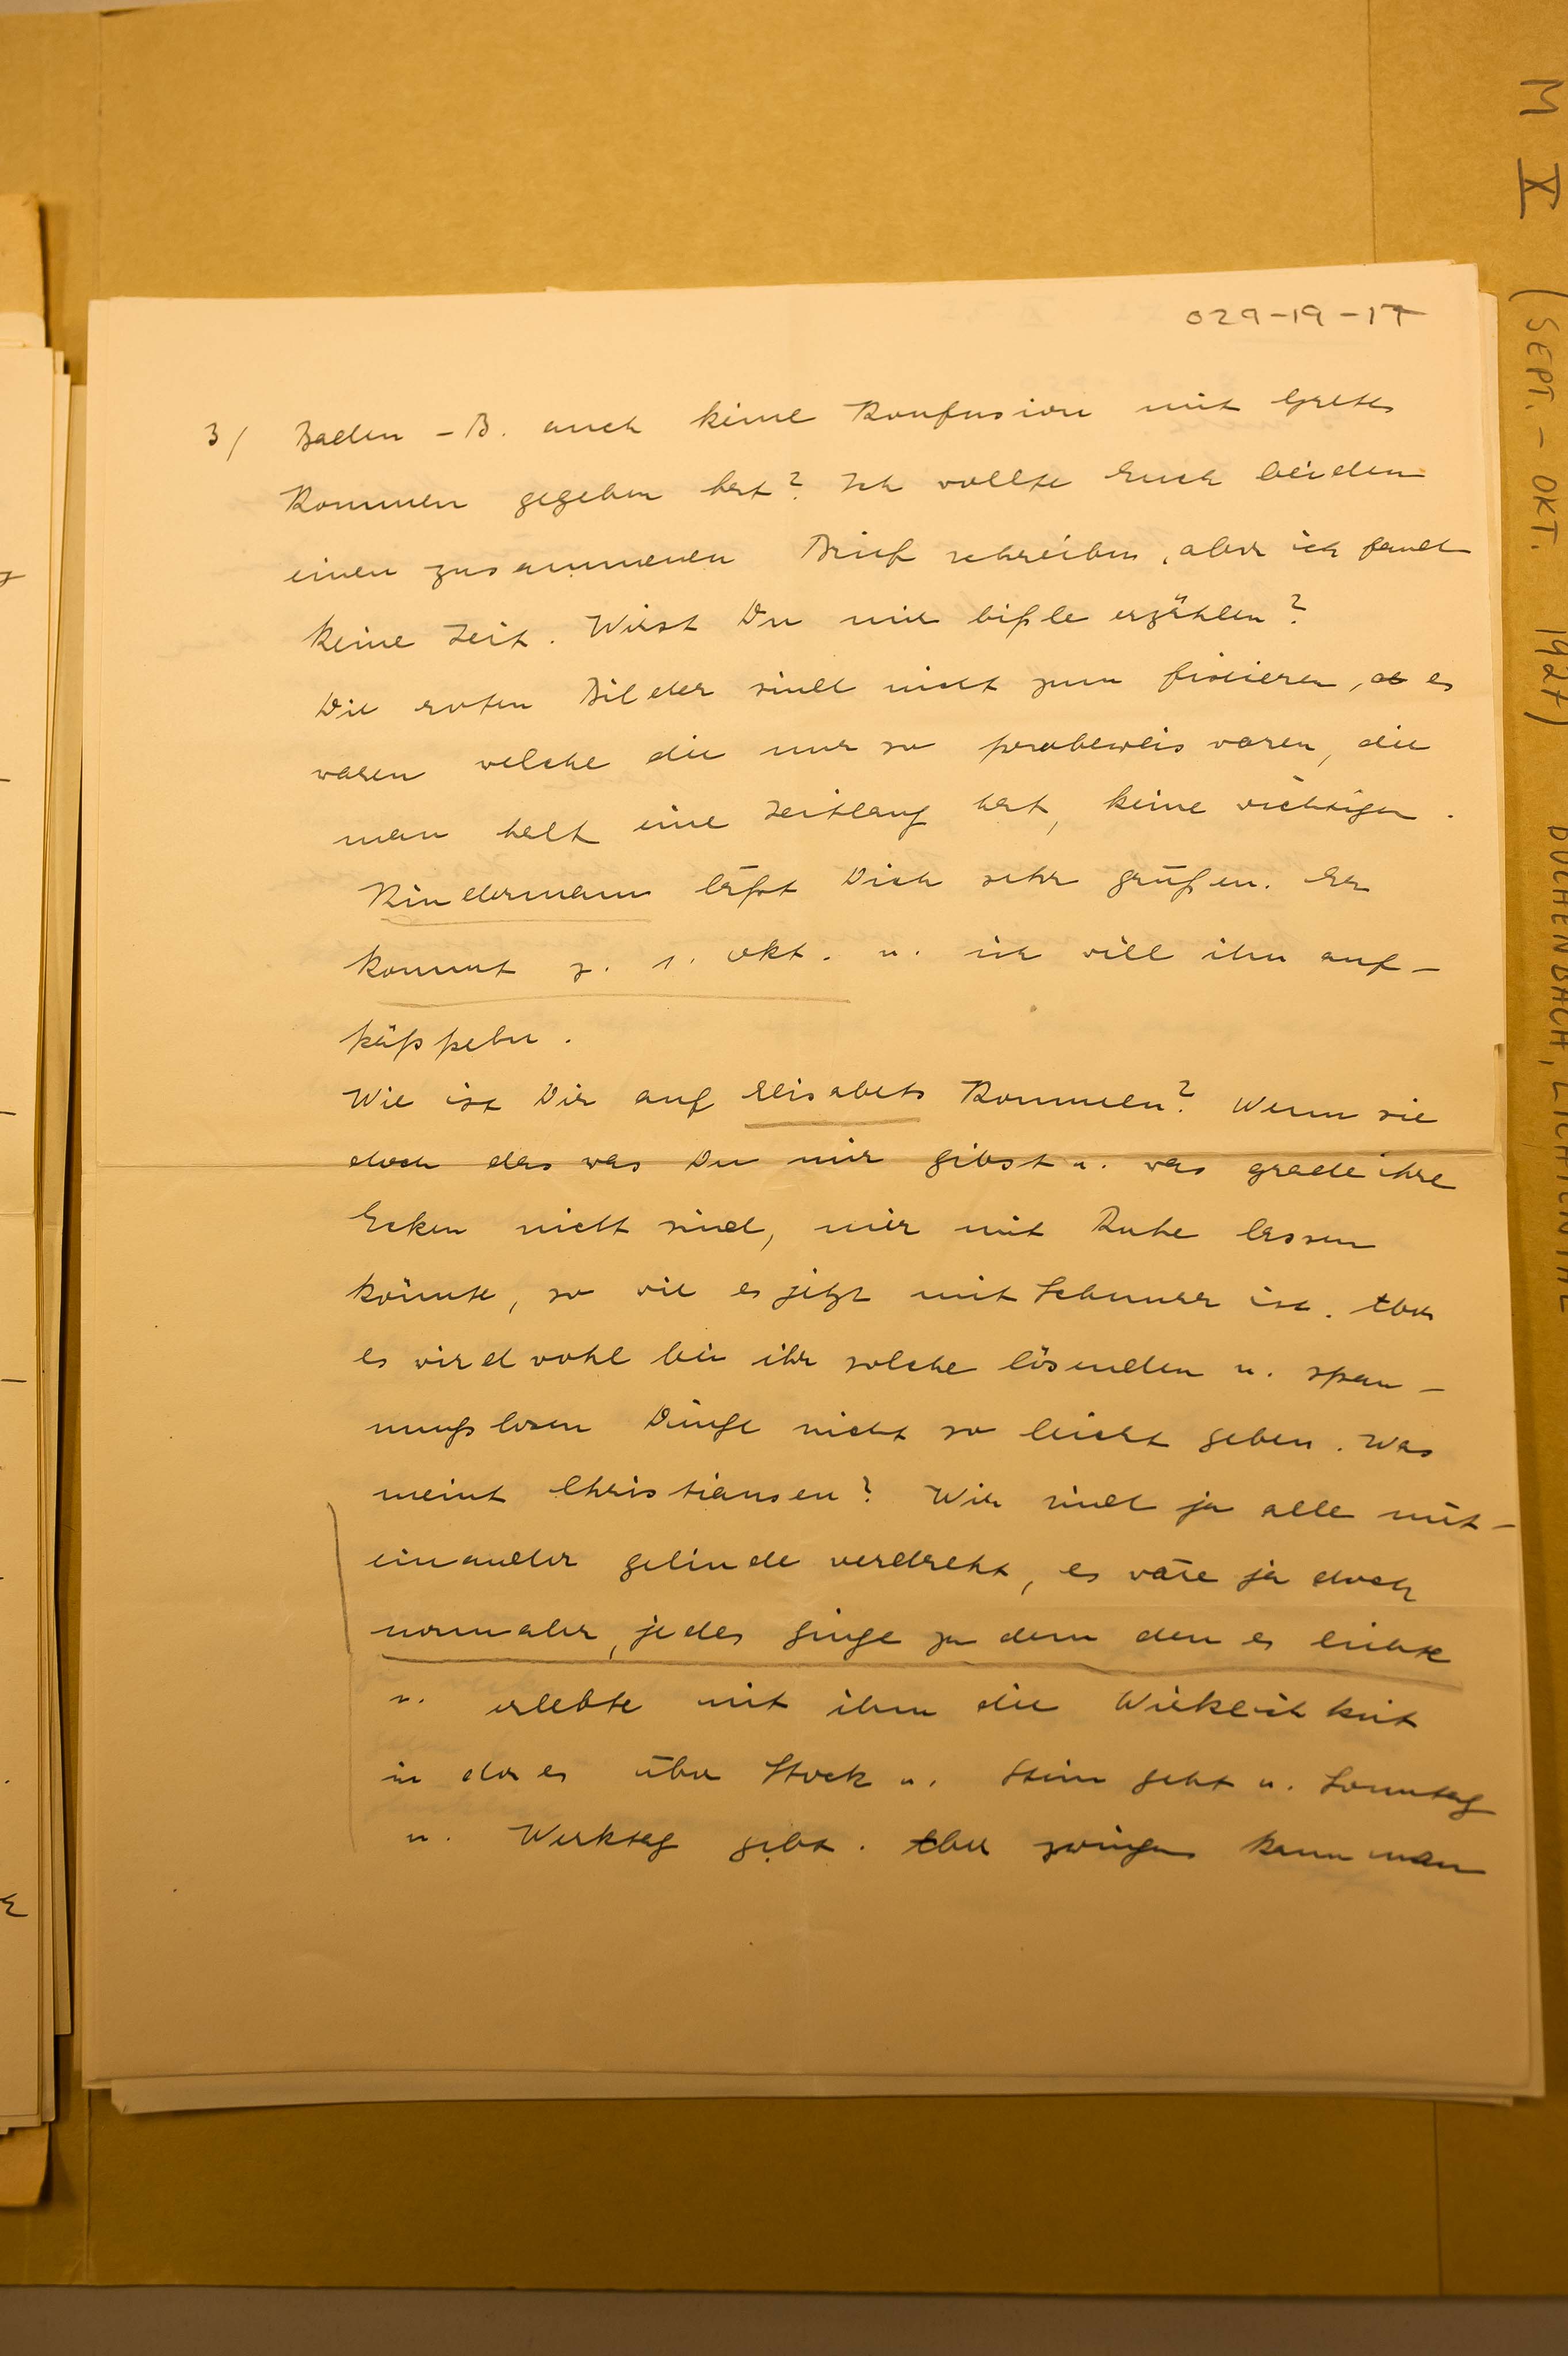 029-19-17
3/ Baden-B. auch keine Konfusion mit Gretes
Kommen gegeben hat? Ich wollte Euch beiden
einen zusammenen Brief schreiben, aber ich fand
keine Zeit. Wirst Du mir bißle erzählen?
Die roten Bilder sind nicht zum fixieren, es
waren welche die nur so probeweis waren, die
man halt eine Zeitlang hat, keine richtigen.
Kindermann läßt Dich sehr grüßen. Er
kommt z. 1. Okt. u. ich will ihn auf-
päppeln.
Wie ist Dir auf Elisabets Kommen? Wenn sie
doch das was Du mir gibst u. was grade ihre
Ecken nicht sind, mir mit Ruhe lassen
könnte, so wie es jetzt mit Schnurr ist. Aber
es wird wohl bei ihr solche lösenden u. span-
nungslosen Dinge nicht so leicht geben. Was
meint Christiansen? Wir sind ja alle mit-
einander gelinde verdreht, es wäre ja doch
normaler, jedes ginge zu dem den es liebte
u. erlebte mit ihm die Wirklichkeit
in der es über Stock u. Stein geht u. Sonntag
u. Werktag gibt. Aber zwingen kann man
M X (SEPT. - OKT. 1927) BUCHENBACH, LICHTENTHAL